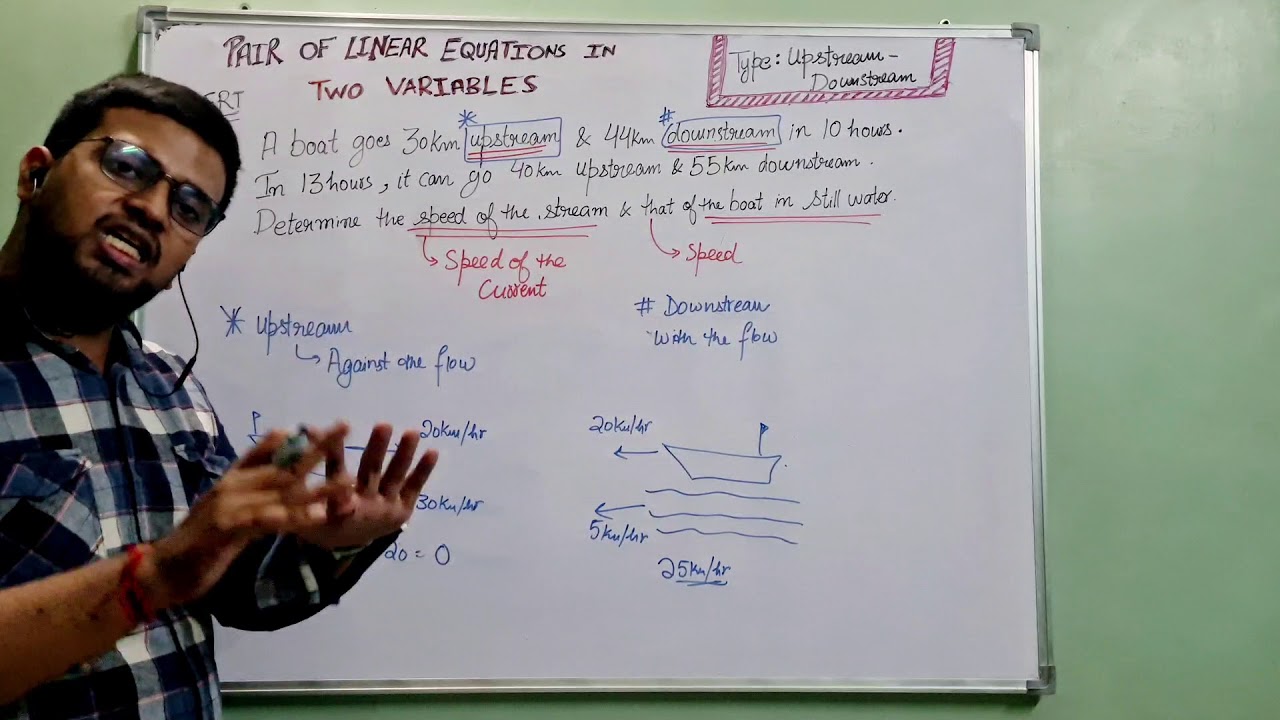 PAIR OF LINEAR EQUATIONS IN
TWO VARIABLES
Type: Upstream -
Downstream
A boat goes 30km upstream & 44km downstream in 10 hours.
In 13 hours, it can go 40km upstream & 55km downstream.
Determine the speed of the stream & that of the boat in still water.
Speed of the
Current
Speed
* Upstream
Against the flow
# Downstream
With the flow
20km/hr
30km/hr
20 = 0
20km/hr
5km/hr
25km/hr